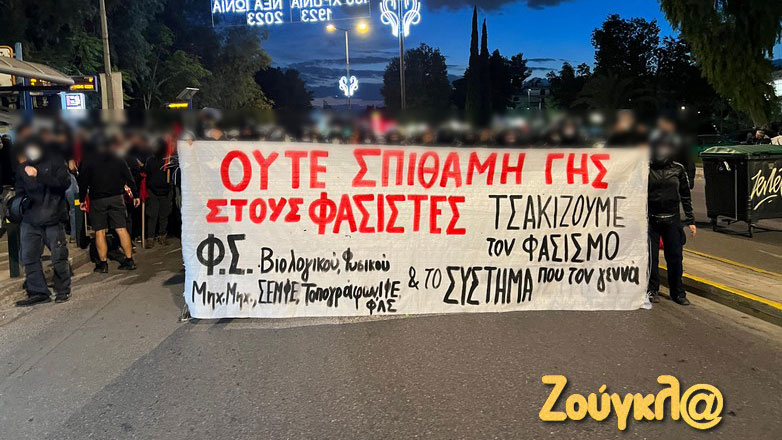 100 ΧΡΟΝΙΑ ΝΕΑ ΙΩΝΙΑ
1923 2023
ΟΥΤΕ ΣΠΙΘΑΜΗ ΓΗΣ
ΣΤΟΥΣ ΦΑΣΙΣΤΕΣ
ΤΣΑΚΙΖΟΥΜΕ
τον ΦΑΣΙΣΜΟ
& το ΣΥΣΤΗΜΑ που τον γεννά
Φ.Σ. Βιολογικού, Φυσικού
Μηχ. Μηχ., ΣΕΜΦΕ, Τοπογράφων, ΙΦΕ
ΦΛΣ
Ζούγκλ@